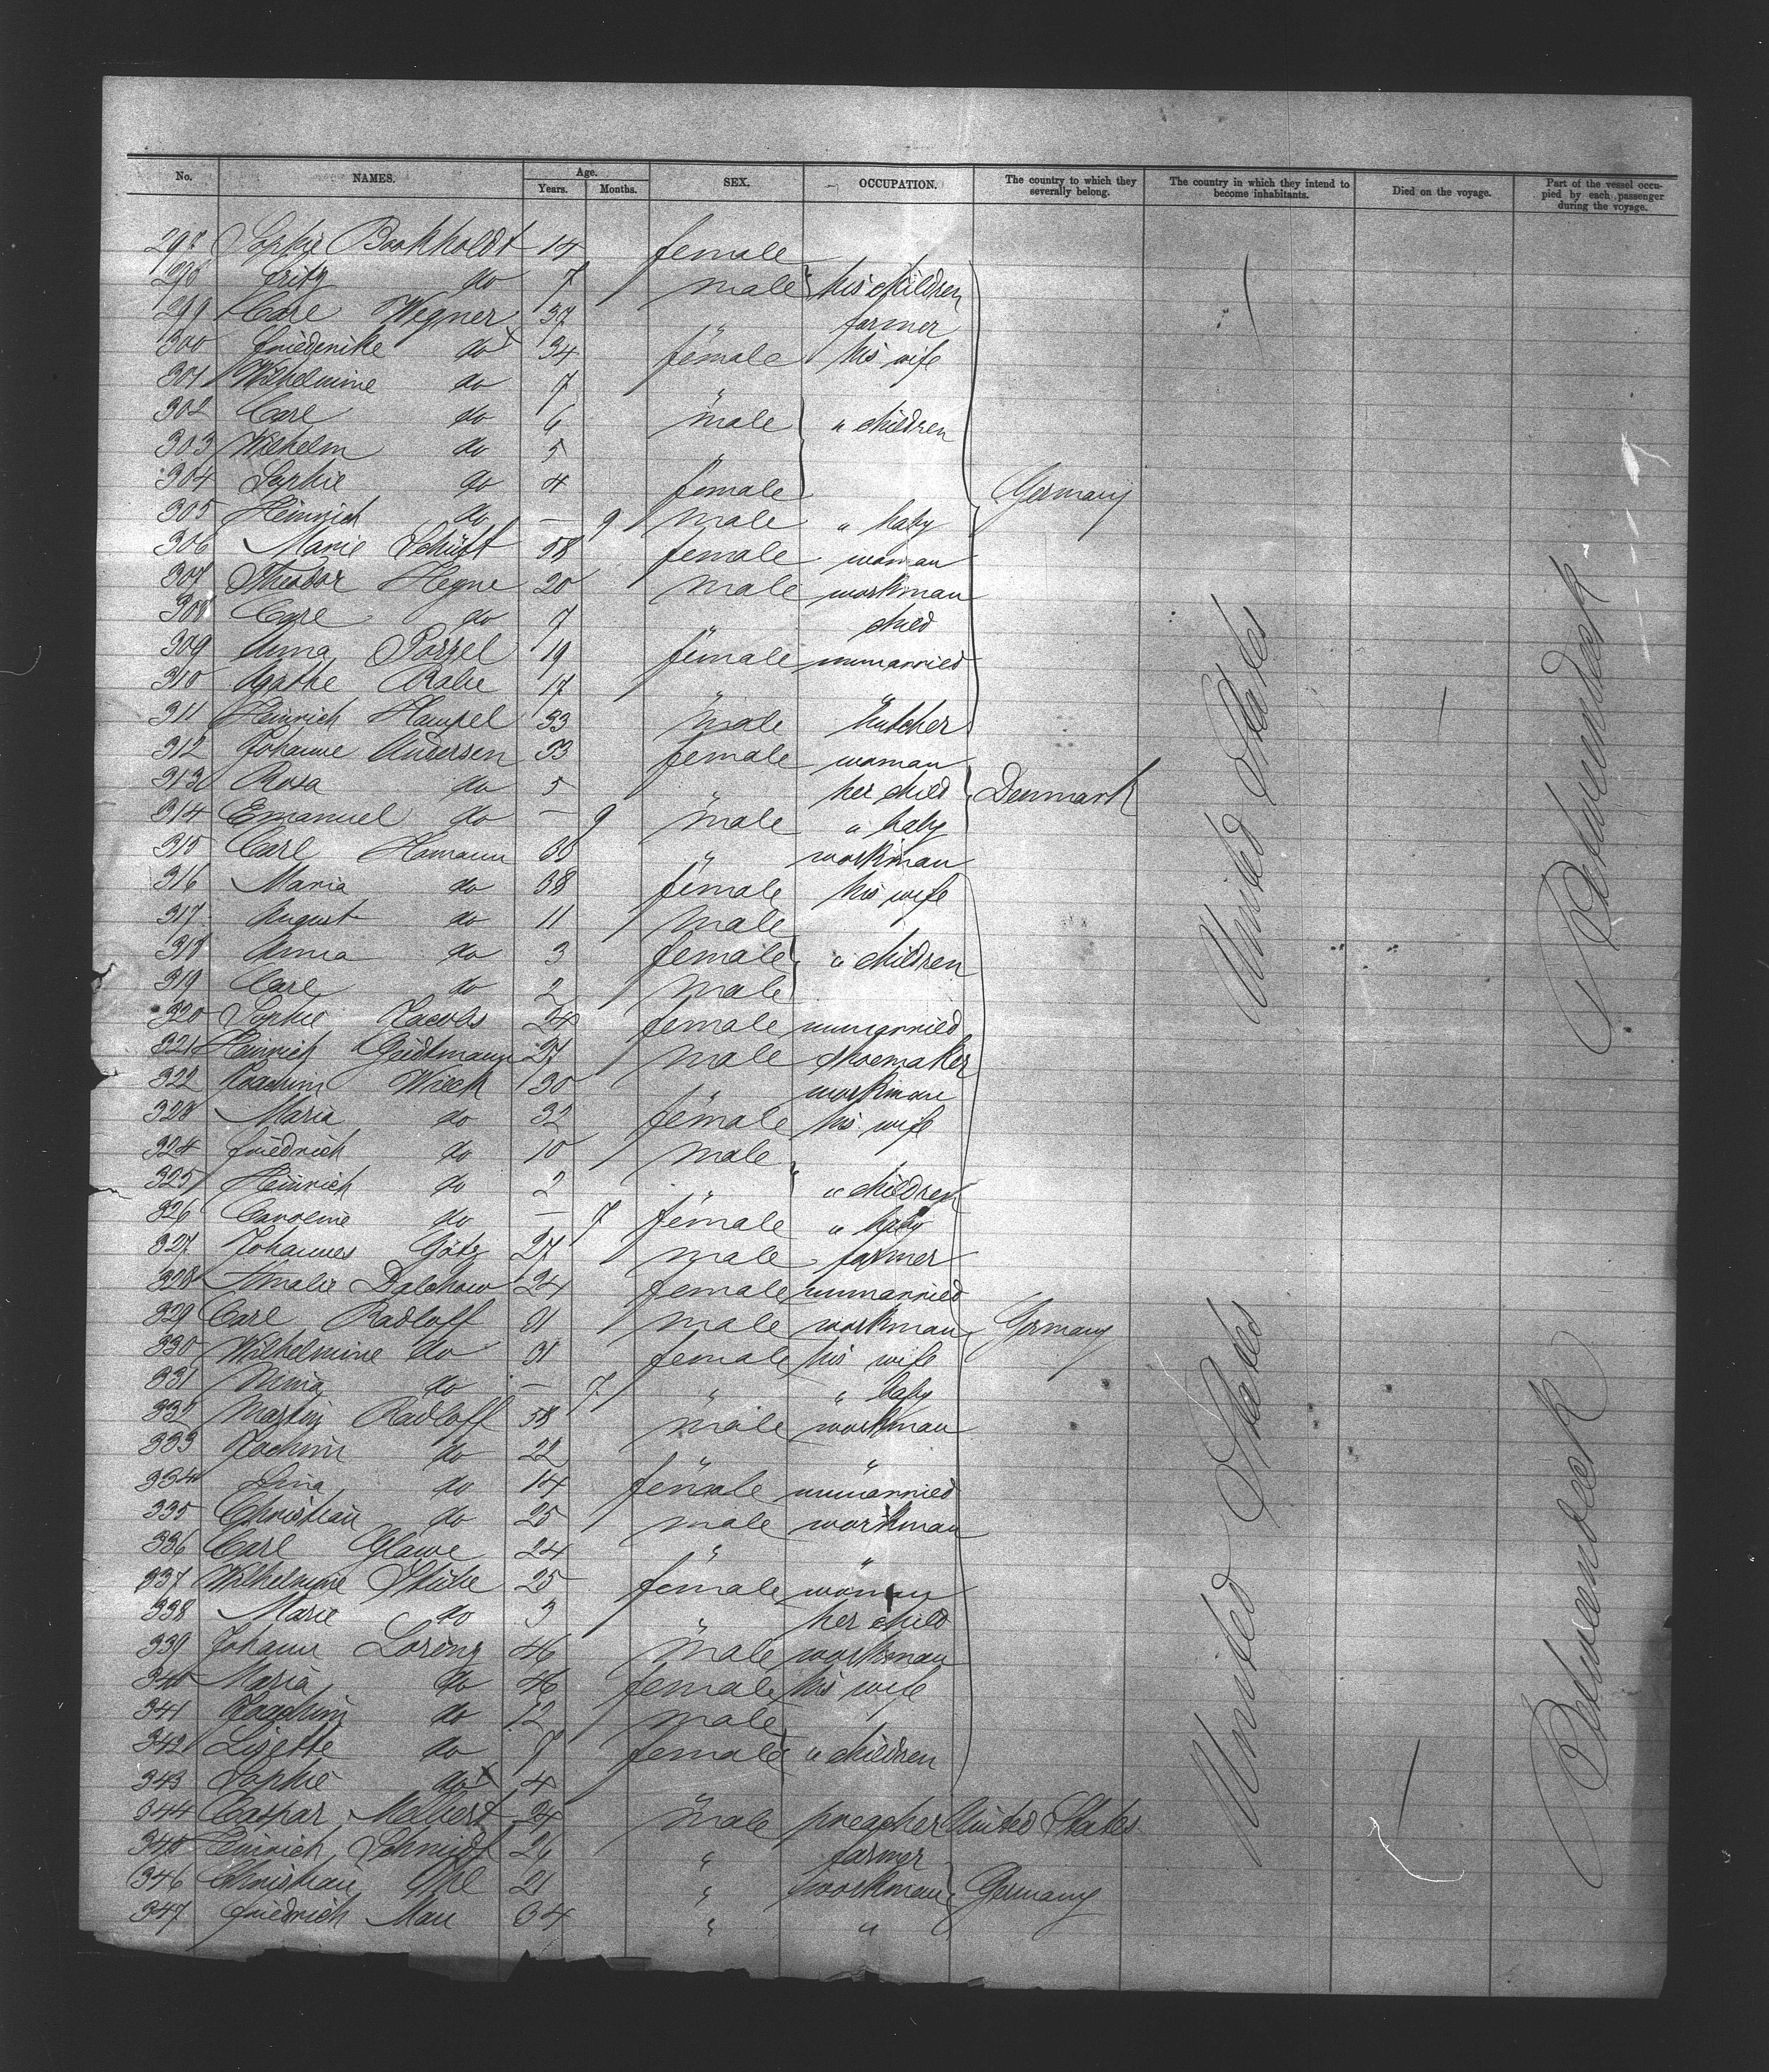 No. NAMES. Age. Years. Months. SEX. OCCUPATION. The country to which they severally belong. The country in which they intend to become inhabitants. Died on the voyage. Part of the vessel occupied by each passenger during the voyage.
297 Sophie Bookholdt 14 female
298 Fritz do 7 male his children
299 Carl Wegner 37 " farmer
300 Friederike do 34 female his wife
301 Wilhelmine do 7 "
302 Carl do 6 male " children
303 Wilhelm do 5 "
304 Sophie do 4 female Germany
305 Heinrich do — 9 male " baby
306 Marie Schütt 58 female woman
307 Theodor Heyne 20 male workman
308 Carl do 7 " child
309 Anna 19 female unmarried
310 Agathe Rabe 17 "
311 Heinrich Hampel 33 male butcher
312 Johanne Andersen 33 female woman
313 Rosa do 5 " her child Denmark
314 Emanuel do — 9 male " baby
315 Carl Hamann " workman
316 Maria do 38 female his wife
317 August do 11 male
318 Anna do 3 female " children United States Betweendeck
319 Carl do 2 male
320 Sophie Jacobs 24 female unmarried
321 Heinrich 27 male shoemaker
322 Joachim Wieck 30 " workman
323 Maria do 32 female his wife
324 Friedrich do 10 male
325 Heinrich do 2 " " children
326 Caroline do — 7 female " baby
327 Johannes Götz 27 male farmer
328 Amalie Dalchow 24 female unmarried
329 Carl Radloff 31 male workman Germany
330 Wilhelmine do 31 female his wife
331 Mina do — 7 " " baby
332 Martin Radloff 58 male workman
333 Joachim do 22 " "
334 Lina do 14 female unmarried
335 Christian do 25 male workman
336 Carl Glawe 24 " "
337 Wilhelmine Stübe 25 female woman
338 Marie do 3 " her child
339 Johann Lorenz 46 male workman
340 Maria do 46 female his wife
341 Joachim do 12 male
342 Lisette do 7 female " children United States Betweendeck
343 Sophie do 4 "
344 Caspar 24 male preacher United States
345 Heinrich Schmidt 26 " farmer
346 Christian 21 " workman Germany
347 Friedrich Mau 34 " "